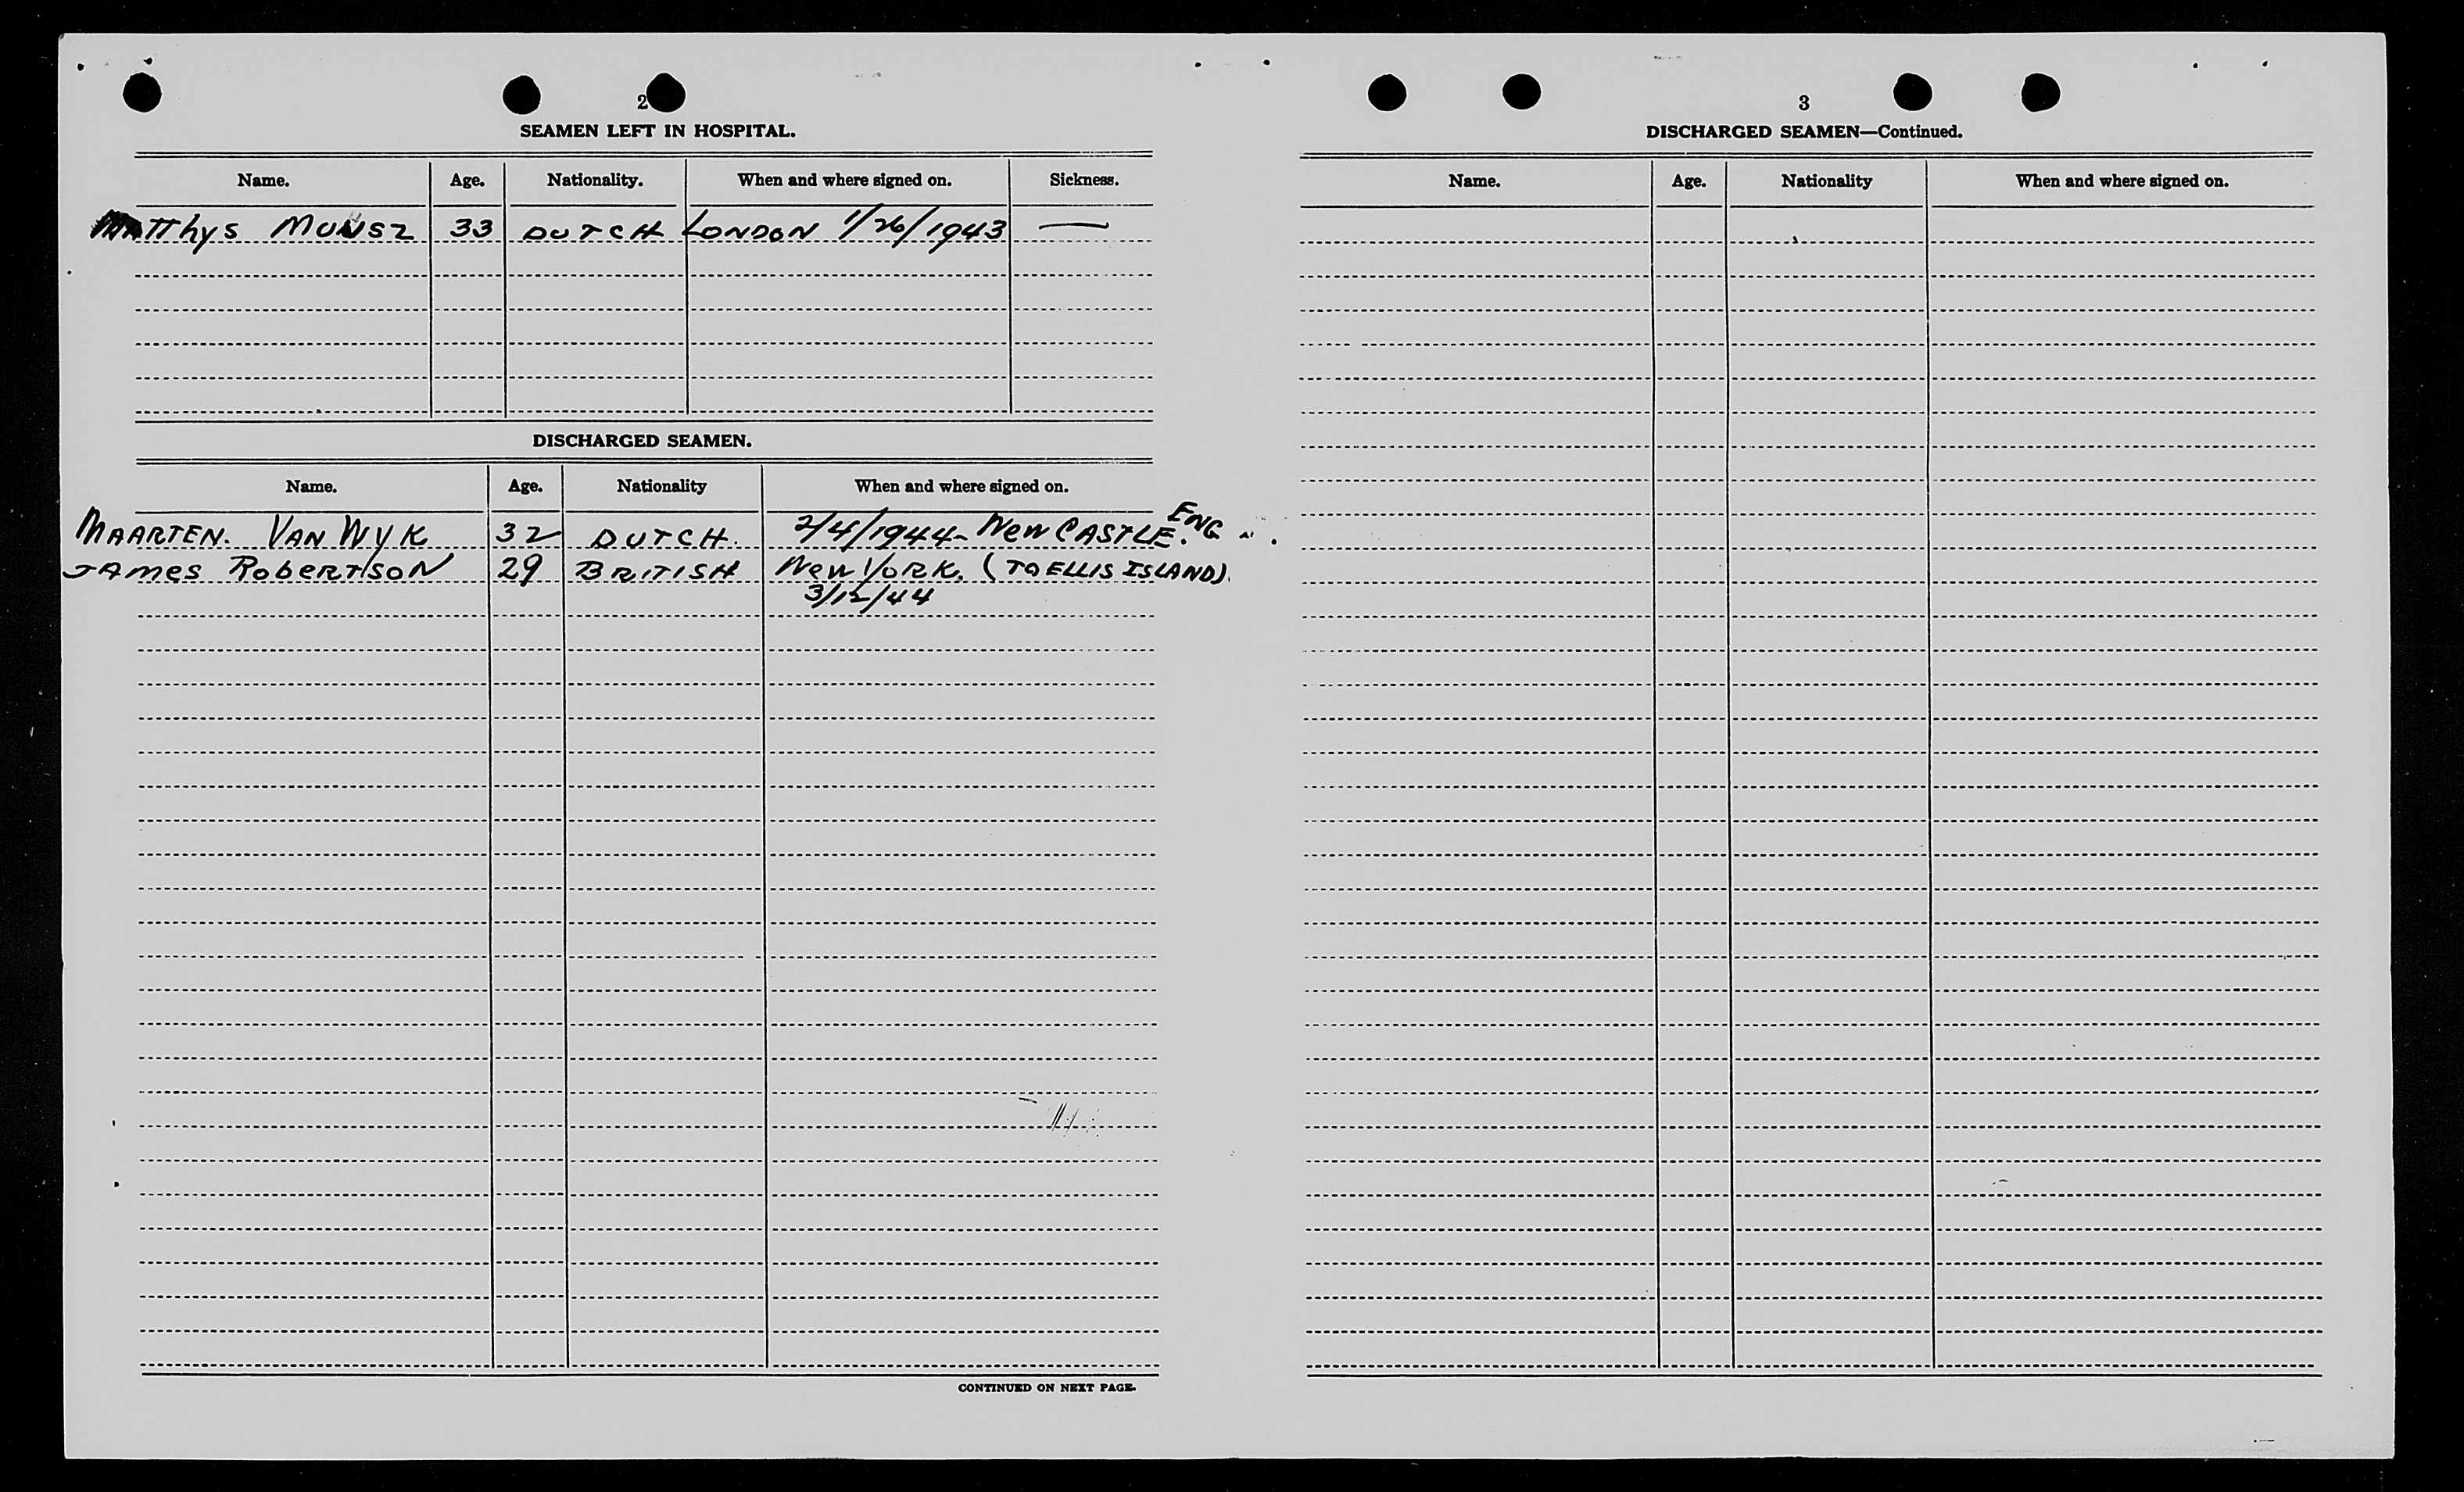 2
SEAMEN LEFT IN HOSPITAL.
Name. Age. Nationality. When and where signed on. Sickness.
MATThys 33 DUTCH LONDON 1/26/1943 —
DISCHARGED SEAMEN.
Name. Age. Nationality When and where signed on.
MAARTEN. VAN WYK 32 DUTCH. 2/4/1944- NewCASTLE. ENG
JAmes RobeRTSON 29 BRITISH New YORK. (TO ELLIS ISLAND).
3/12/44
CONTINUED ON NEXT PAGE.
3
DISCHARGED SEAMEN—Continued.
Name. Age. Nationality When and where signed on.